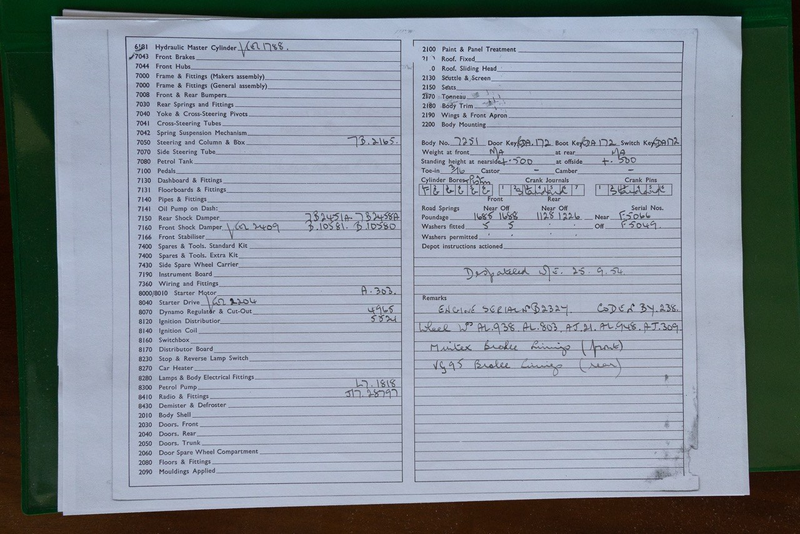 6181 Hydraulic Master Cylinder
7043 Front Brakes
7044 Front Hubs
7000 Frame & Fittings (Makers assembly)
7000 Frame & Fittings (General assembly)
7008 Front & Rear Bumpers
7030 Rear Springs and Fittings
7040 Yoke & Cross-Steering Pivots
7041 Cross-Steering Tubes
7042 Spring Suspension Mechanism
7050 Steering and Column & Box 7B.2165.
7070 Side Steering Tube
7080 Petrol Tank
7100 Pedals
7130 Dashboard & Fittings
7131 Floorboards & Fittings
7140 Pipes & Fittings
7141 Oil Pump on Dash:
7150 Rear Shock Damper 7B2451A 7B2458A
7160 Front Shock Damper B.10581. B.10580
7166 Front Stabiliser
7400 Spares & Tools. Standard Kit
7400 Spares & Tools. Extra Kit
7430 Side Spare Wheel Carrier
7190 Instrument Board
7360 Wiring and Fittings
8000/8010 Starter Motor A.303.
8040 Starter Drive
8070 Dynamo Regulator & Cut-Out 4965
8120 Ignition Distribution 5521
8140 Ignition Coil
8160 Switchbox
8170 Distributor Board
8230 Stop & Reverse Lamp Switch
8270 Car Heater
8280 Lamps & Body Electrical Fittings
8300 Petrol Pump L7.1818
8410 Radio & Fittings J17.28797
8430 Demister & Defroster
2010 Body Shell
2030 Doors. Front
2040 Doors. Rear
2050 Doors. Trunk
2060 Door Spare Wheel Compartment
2080 Floors & Fittings
2090 Mouldings Applied
2100 Paint & Panel Treatment
Roof. Fixed
Roof. Sliding Head
2130 Scuttle & Screen
2150 Seats
2170 Tonneau
2180 Body Trim
2190 Wings & Front Apron
2200 Body Mounting
Body No. 7251 Door Key Boot Key Switch Key
Weight at front N/A at rear N/A
Standing height at nearside +.500 at offside +.500
Toe-in 3/16 Castor - Camber -
Cylinder Bores Crank Journals Crank Pins
Front Rear
Road Springs Near Off Near Off Serial Nos.
Poundage 1685 1688 1128 1226 Near F5066
Washers fitted 5 5 Off F5049.
Washers permitted
Depot instructions actioned
Despatched 25.9.54.
Remarks
ENGINE SERIAL No B2327. CODE No BY.238.
Wheel Nos AL.938 AL.803 AJ.21. AL.948. AJ.309.
Mintex Brake Linings (front)
VG95 Brake Linings (rear)